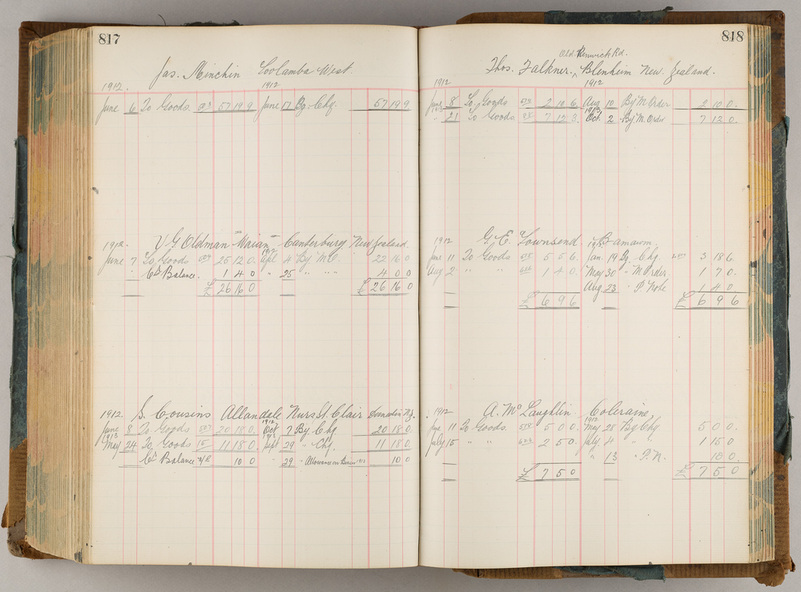 817
Jas. Minchin Coolamba West.
1912. 1912
June 6 To Goods 57 19 9 June 17 By Chq 57 19 9
1912. V G Oldman "Waian" Canterbury New Zealand.
June 7 To Goods 25 12 0 Sept 4 By M.O. 22 16 0
" Cd Balance 1 4 0 " 25 " " 4 0 0
£ 26 16 0 £ 26 16 0
1912 S. Cousins Allandale Nurs St. Clair Dunedin N.Z.
June 8 To Goods 20 18 0 Oct 7 By Chq 20 18 0
1913
May 24 To Goods 11 15 0 Sept 29 " Chq. 11 15 0
Cd Balance 10 0 " 29 " 10 0
818
Old Renwick Rd.
Thos. Falkner, Blenheim New Zealand.
1912 1912
June 8 To Goods 2 10 6 Aug 10 By M Order 2 10 0
" 21 To Goods 7 12 3 Oct 2 By M Order 7 13 0
1912 G. E. Townsend Gamawm
June 11 To Goods 5 5 6 Jan. 19 By Chq 3 18 6
Aug 2 " " 1 4 0 May 30 " M Order 1 7 0
Aug 23 " P. Note 1 4 0
£ 6 9 6 £ 6 9 6
1912 A. McLaughlin Coleraine,
June 11 To Goods 5 0 0 May 28 By Chq 5 0 0
July 15 " " 2 5 0 July 4 " 1 15 0
" 13 " P. N. 10 0
£ 7 5 0 £ 7 5 0